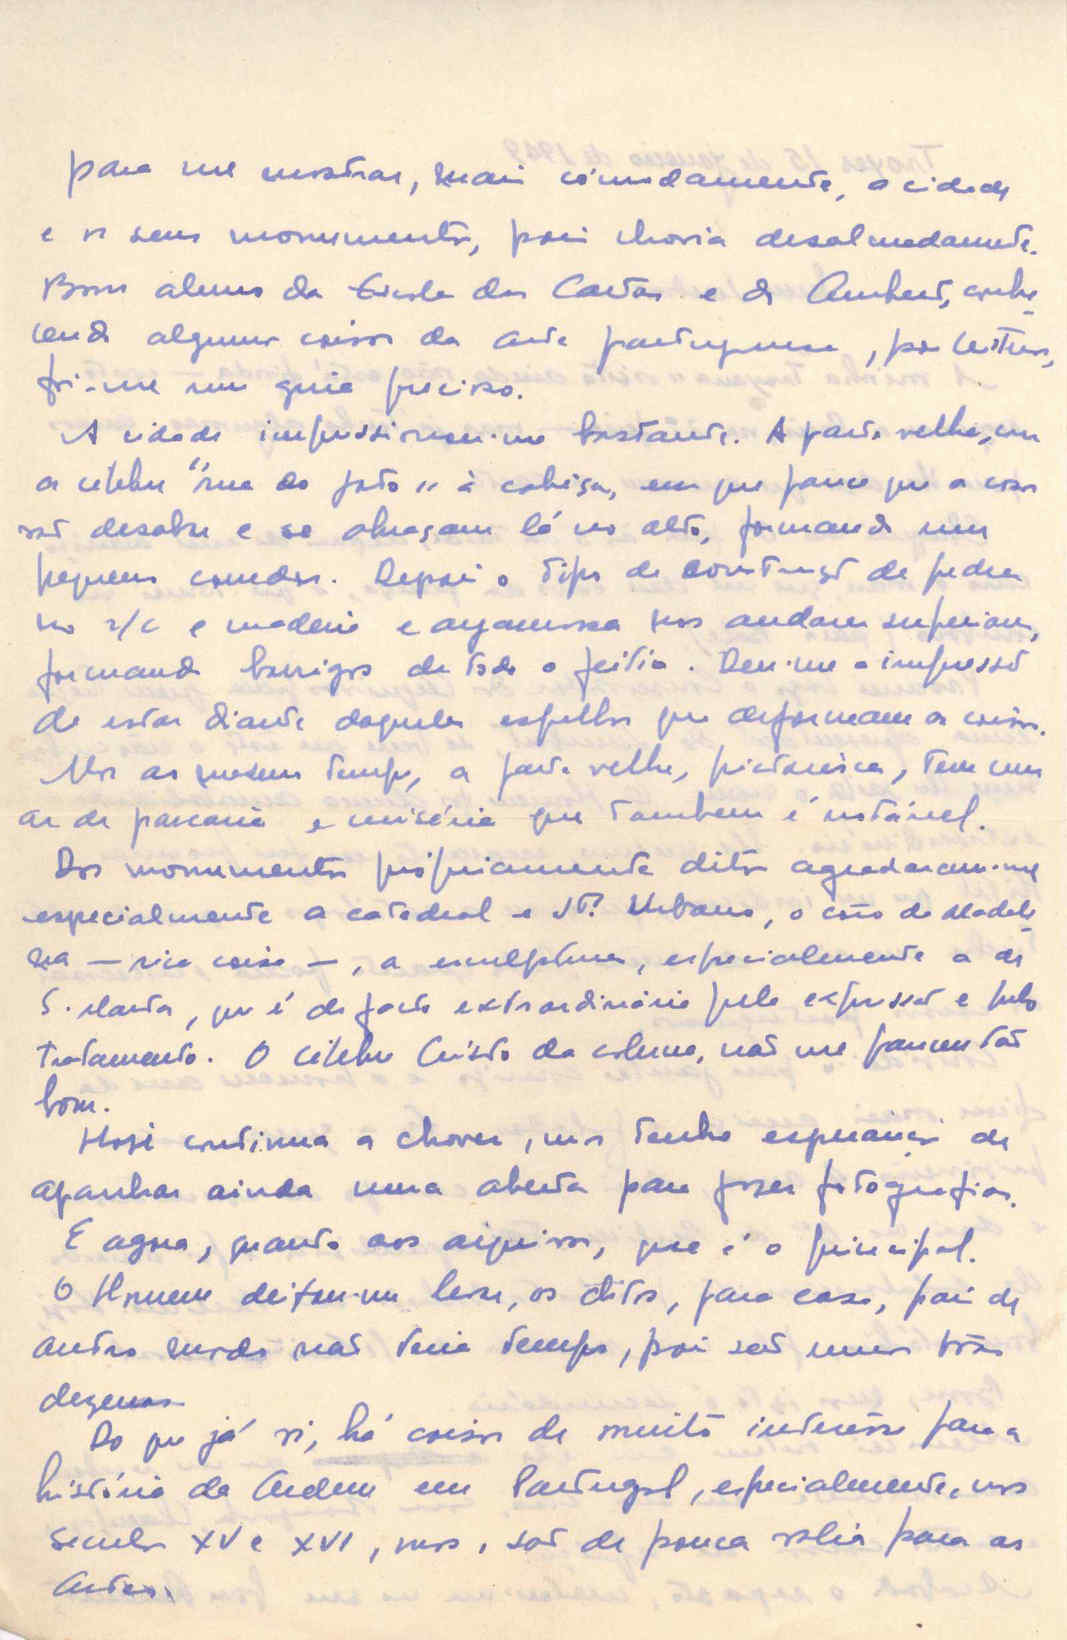 para me mostrar, mais cómodamente, a cidade
e os seus monumentos, pois chovia desalmadamente.
Bom aluno da Escola das Cartas e de Aubert, conhe-
cendo algumas coisas da arte portuguesa, por leituras,
foi-me um guia precioso.
A cidade impressionou-me bastante. A parte velha, com
a célebre "rua do gato" à cabeça, em que parece que a casa
se abraçam lá no alto, formando um
pequeno corredor. Depois o tipo de construção de pedra
no r/c e madeira e argamassa nos andares superiores,
formando barrigas de todo o feitio. Deu-me a impressão
de estar diante daqueles espelhos que deformam as coisas.
Mas ao mesmo tempo, a parte velha, pictoresca, tem um
ar de porcaria e miséria que tambem é notável.
Dos monumentos pròpriamente ditos agradaram-me
especialmente a catedral e Stº Urbano, o coro da Madale-
na — rica coisa —, a esculptura, especialmente a de
S. Marta, que é de facto extraordinária pela expressão e pelo
tratamento. O célebre Cristo da coluna, não me pareceu tão
bom.
Hoje continua a chover, mas tenho esperanças de
apanhar ainda uma aberta para fazer fotografias.
E agora, quanto aos arquivos, que é o principal.
O Homem deixou-me levar, os ditos, para casa, pois de
outro modo não teria tempo, pois são umas boas
dezenas.
Do que já vi, há coisas de muito interesse para a
história da Ordem em Portugal, especialmente, nos
seculos XV e XVI, mas, são de pouca valia para as
Artes.